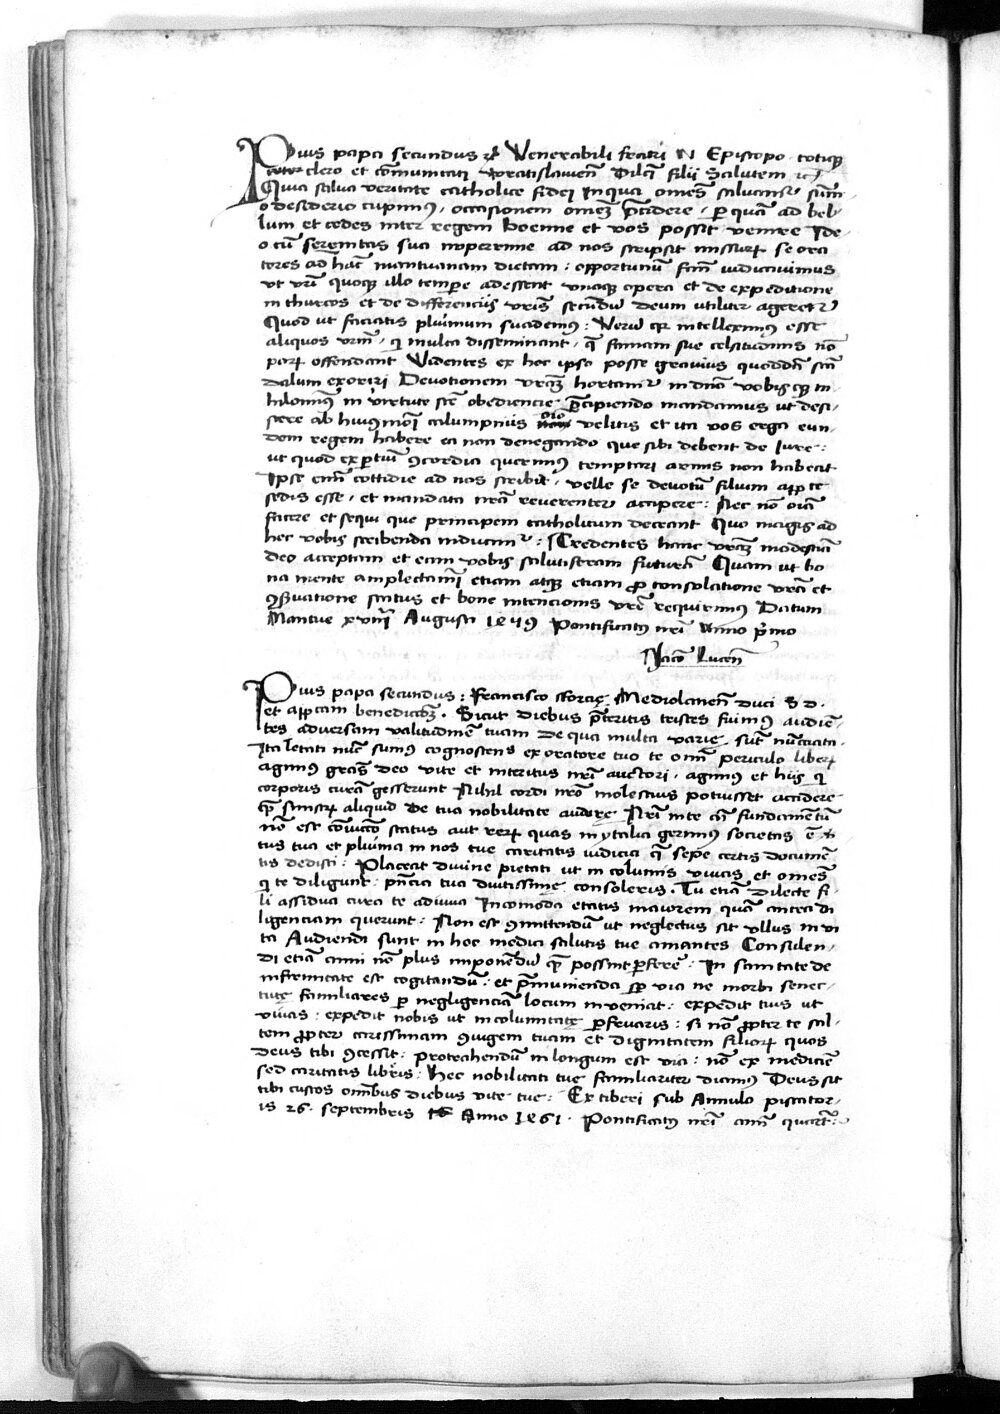 Pius papa secundus etc Venerabili fratri N Episcopo totiq3
clero et cōmunitati wratislauien̄ Dilcī filii Salutem etc
Quia salua veritate catholice fidei In qua omēs saluant᷑ sum̄-
o desiderio cupimꝰ, occasionem omēȝ p̄cidere, per quā ad bel-
lum et cedes inter regem boemie et vos possit venire Ide-
o cū serenitas sua nup perenne ad nos scripsit missurꝝ se ora
tores ad hāc mantuanam dietam: opportunū fam̄ iudicauimus
vt vrī quoqȝ illo tempore adessent vnaqȝ opera et de expeditione
in thurcos et de differenciis vrīs secundū deum utiliter ageretur
Quod ut faciatis plurimum suademꝰ: Verū qꝛ intelleximꝰ esse
aliquos vrm̄, qi multa disseminant, q̄ famam sue celsitudinis nō
parꝝ offendant Videntes ex hoc ipso posse grauius quoddā scā
dalum exoriri Deuotionem vrāȝ hortamur in dnō vobisqȝ ni-
hilominꝰ in virtute scē obediencie p̄cipiendo mandamus ut desi-
stere ab huiꝰmōi calumpniis oīo velitis et ita vos erga eun-
dem regem habere ea non denegando que sibi debent de Iure:
ut quod expertiū ꝯcordia querimꝰ temptari armis non habeat
Ipse enīm cottidie ad nos scribit, velle se deuotū filium aplice
sedis esse, et mandata nrā reuerenter accipere: Nec nō oīa
facere et sequi que principem catholicum deceant Quo magis ad
hec vobis scribenda inducimur: Credentes hanc vrāȝ modestiā
deo acceptam et eam vobis salutiferam futurā Quam ut bo
na mente amplectamī etiam atqȝ etiam ꝓ consolatione vrā et
ꝯseruatione status et bone intencionis vrē requirimꝰ Datum
Mantue xviii Augusti 1459 Pontificatꝰ nrī Anno pͥmo
Jacō Lucen̄
Pius papa secundus: Francisco sforcię Mediolanen̄ Duci S D
et aplicam benedictōȝ. Sicut diebus p̄teritis tristes fuimꝰ audiē-
tes aduersam valitudinē tuam de qua multa varie sūt nūciata.
Ita letati nūc sumus cognoscens ex oratore tuo te omī periculo liberū
agimꝰ grās deo vite et interitus nrī auctori, agimꝰ et hiis qi
corporis curā gesserunt Nihil cordi nrō molestius potuisset accidere
q̄ sinistrū aliquid de tua nobilitate audire Nrm̄ in te eī fundamentū
nō est cōmūcō status aut rerꝝ quas in ytalia gerimꝰ societas ē vir
tus tua et plurima in nos tue caritatis iudicia q̄ sepe certis documē
tis dedisti: Placeat diuine pietati ut in columis viuas et omēs
qi te diligunt: pn̄cia tua diutissime consoleris. Tu etiā dilecte fi-
li assidua cura te adiuua Incomoda etatis maiorem quā antea di
ligenciam querunt: Non est ꝯmittendū ut neglectus sit vllus in vi
ta Audiendi sunt in hoc medici salutis tue amantes Consulen-
di etiā animi nō plus imponendū q̄ possint perferre: In sanitate de
infirmitate est cogitandū: et p̄munienda semper via ne morbi senec-
tutę familiares per negligenciā locum inueniat: expedit tuis ut
viuas: expedit nobis ut in columitatę perfruaris: si nō ꝓpter te sal-
tem ꝓpter carissimam ꝯiugem tuam et dignitatem filiorꝝ quos
Deus tibi ꝯcessit: protrahendū in longum est vita: nō ex medicīe
sed caritatis libris: hec nobilitati tue familiariter dicimꝰ Deus sit
tibi custos omībus diebus vite tue: Ex tiberi sub Annulo piscator-
is 26. septembris Anno 1461. Pontificatꝰ nrī anno quarto: